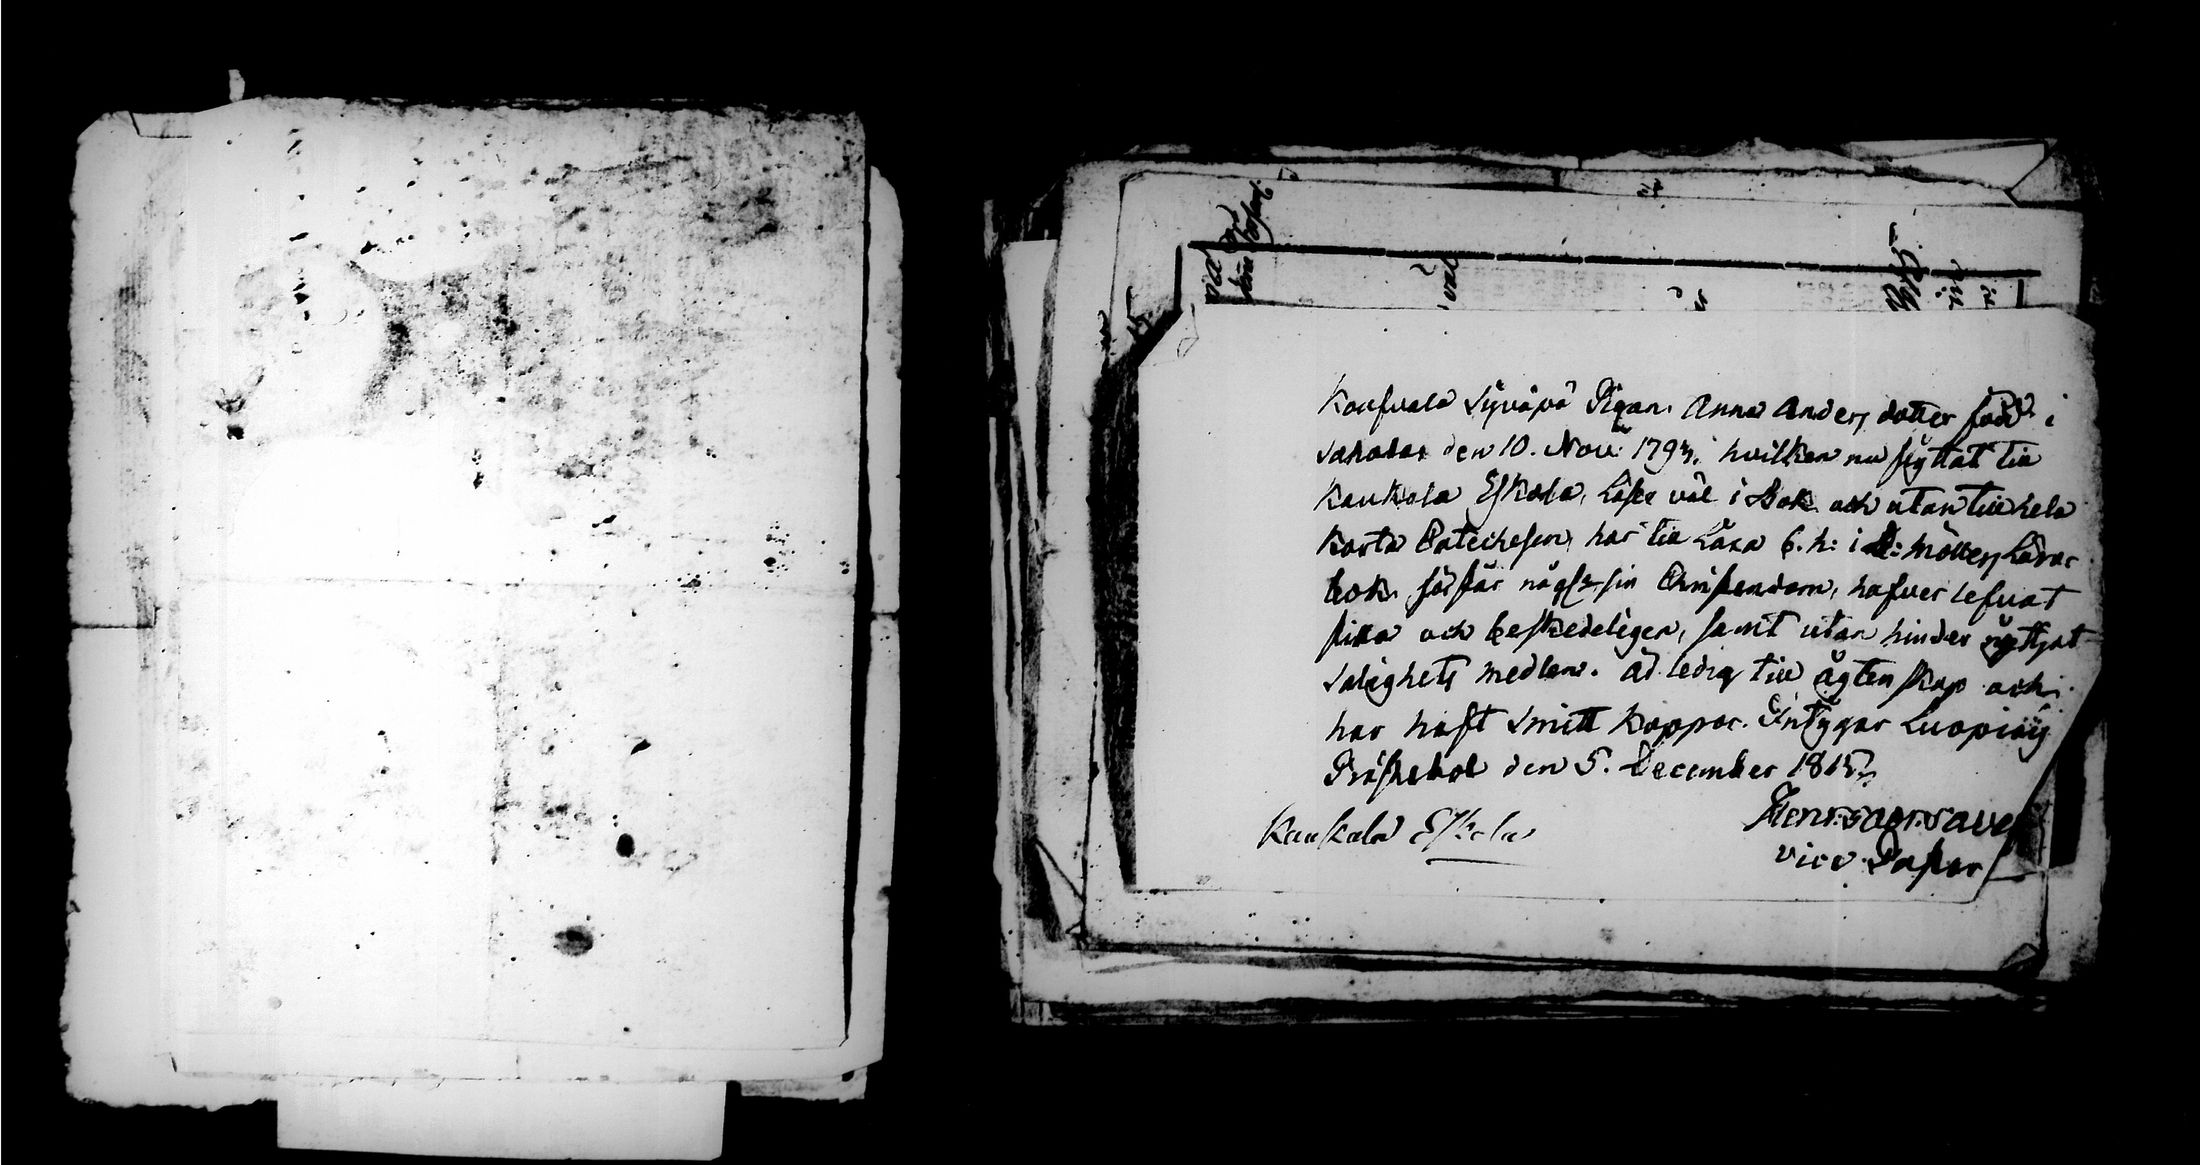 Kaufvala Syväpä Pigan Anna Anders dotter född i
Sahalax den 10. Nov: 1793. hvilken nu flyttat till
Kaukola Eskola, Läser väl i Bok och utan till hela
korta Catechesen, har till Lära 6. h: i D: Möllers Läro-
bok. förstår någst sin Christendom, hafver lefvat
stilla och beskedeligen, samt utan hinder nyttjat
Salighets medlen. är ledig till ägtenskap och
har haft Smitt koppor. Intygar Luopiois
Prästebol den 5. December 1815.
vice Pastor
Kaukola Eskola